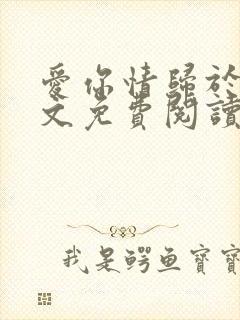 愛你情歸於
文免費閱讀
我是鳄鱼寶寶